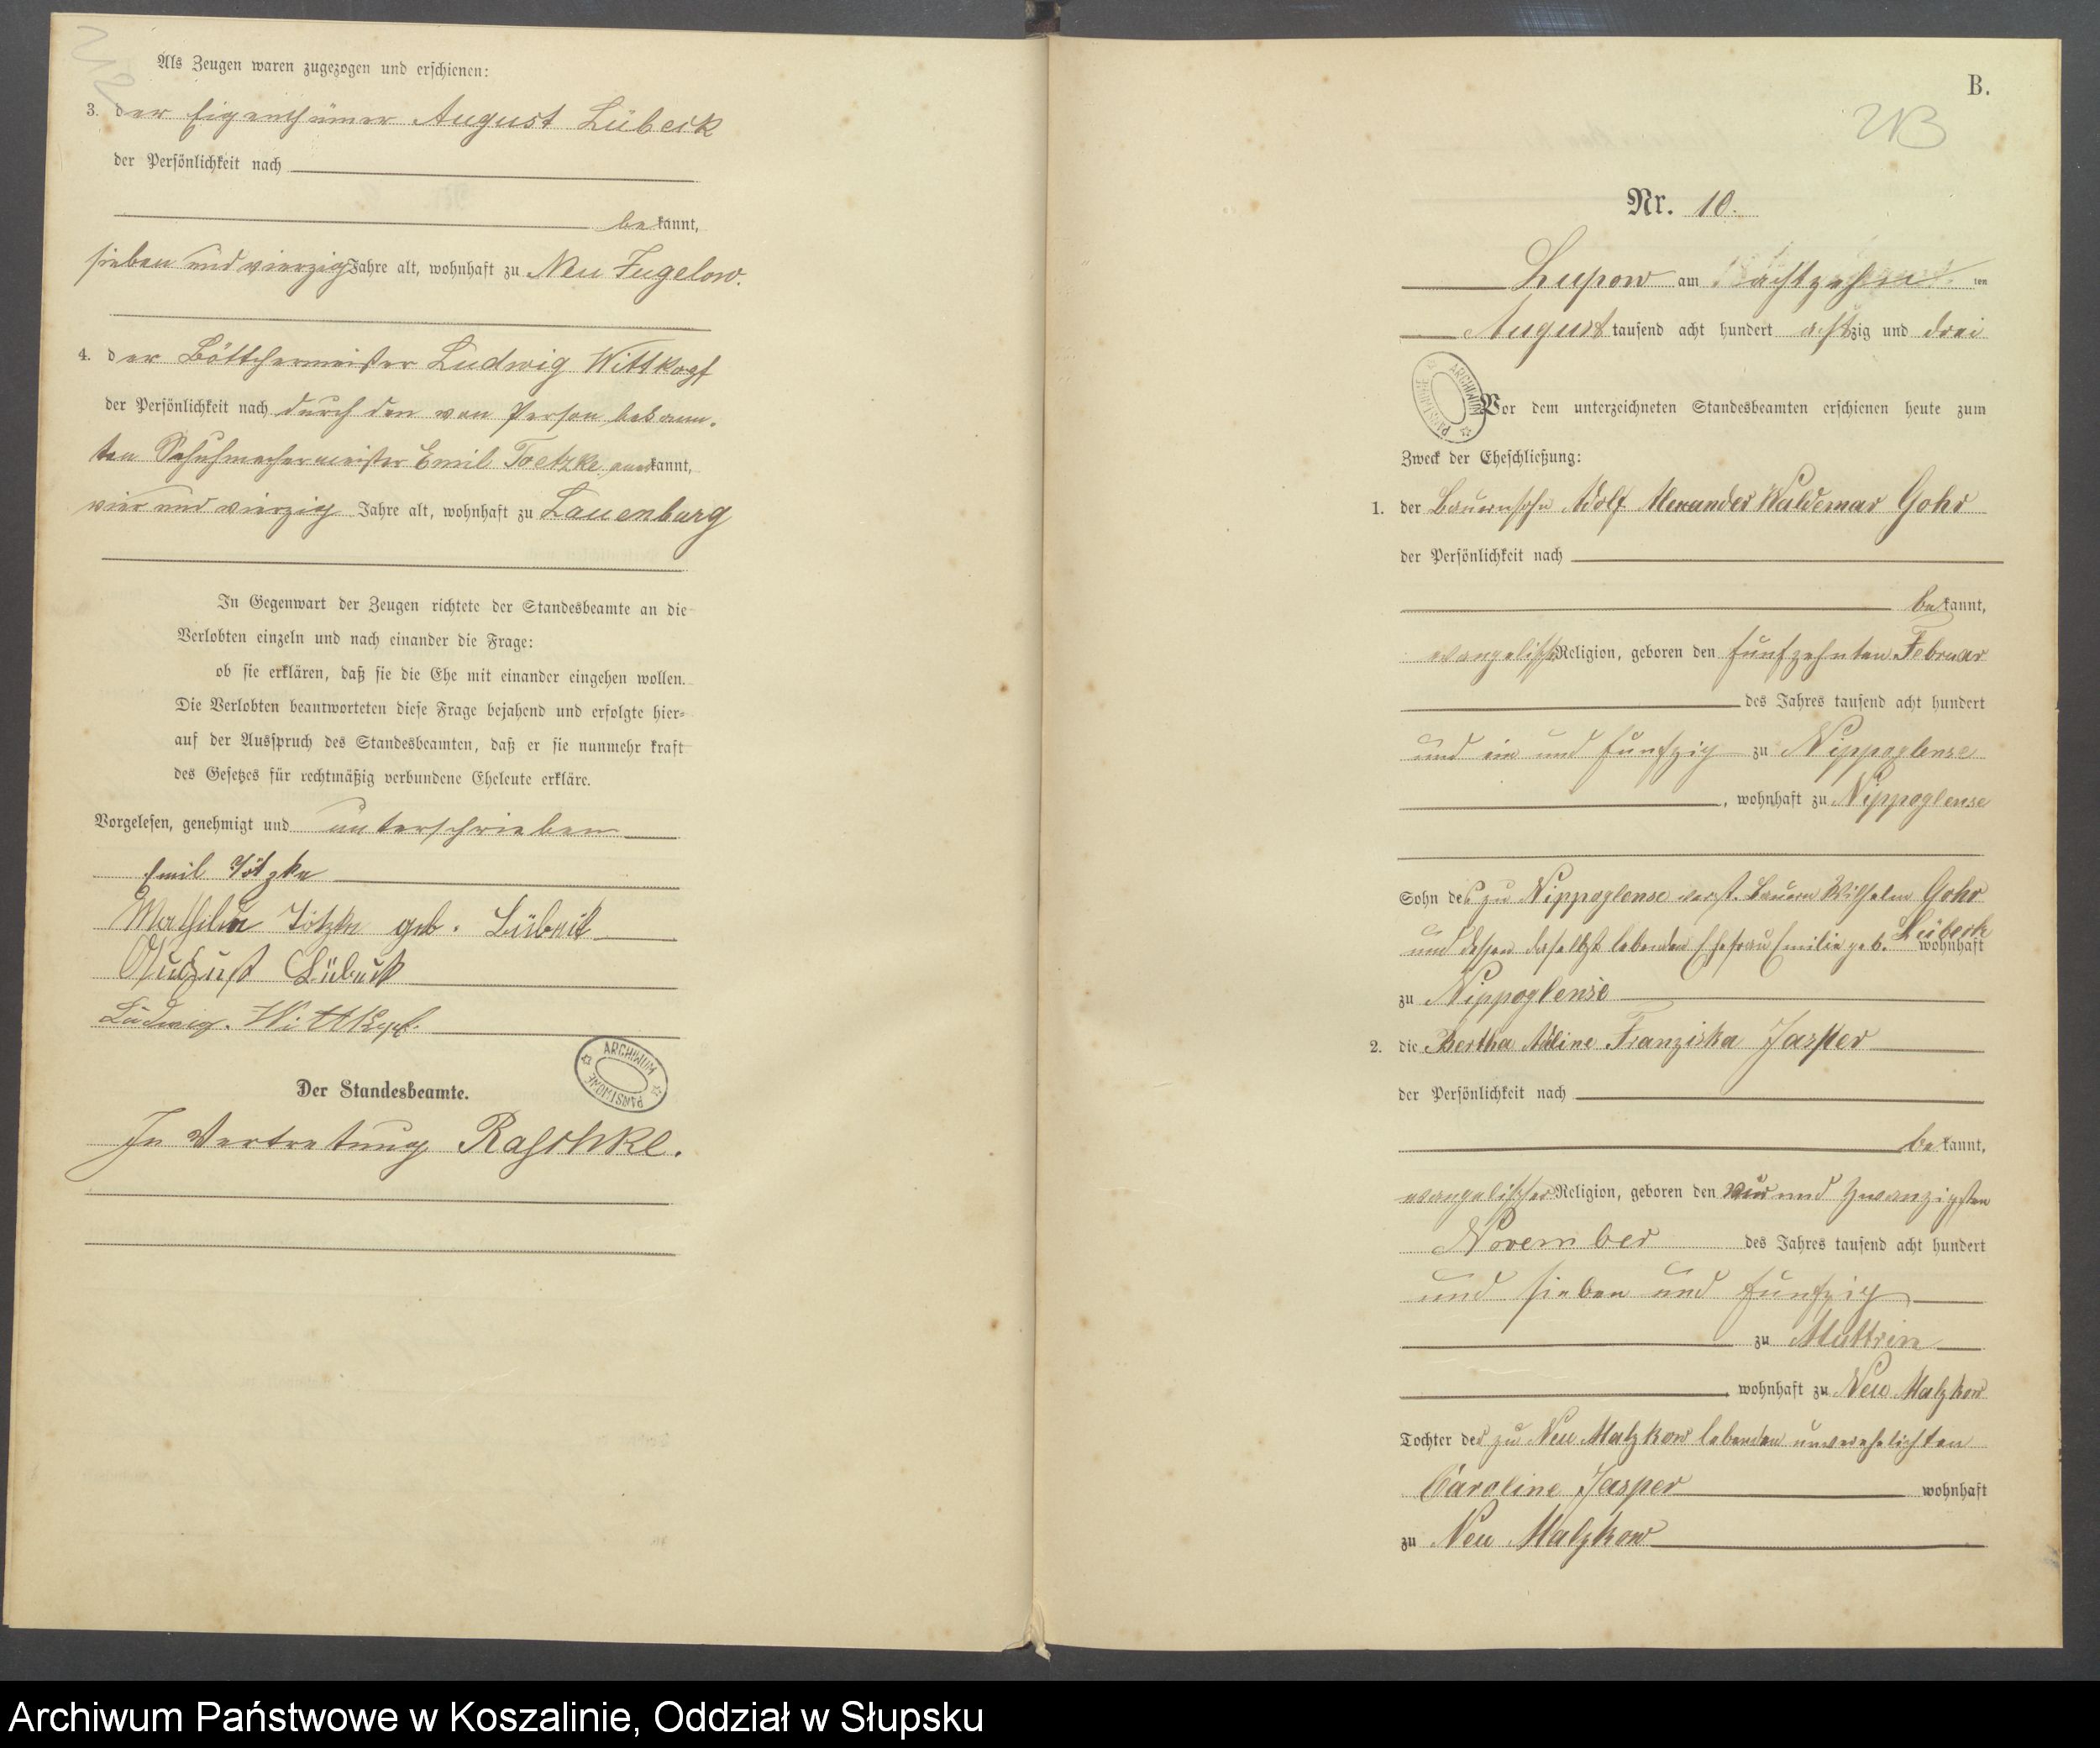 Als Zeugen waren zugezogen und erschienen:
3. der Eigenthümer August Lübeck
der Persönlichkeit nach
bekannt,
sieben und vierzig Jahre alt, wohnhaft zu Neu Jugelow.
4. der Böttchermeister Ludwig Wittkopf
der Persönlichkeit nach durch den von Person bekann-
ten Schuhmachermeister Emil Toetzke anerkannt,
vier und vierzig Jahre alt, wohnhaft zu Lauenburg
In Gegenwart der Zeugen richtete der Standesbeamte an die
Verlobten einzeln und nach einander die Frage:
ob sie erklären, daß sie die Ehe mit einander eingehen wollen.
Die Verlobten beantworteten diese Frage bejahend und erfolgte hier-
auf der Ausspruch des Standesbeamten, daß er sie nunmehr kraft
des Gesetzes für rechtmäßig verbundene Eheleute erkläre.
Vorgelesen, genehmigt und unterschrieben
Emil Tötzke
Mathilde Tötzke geb. Lübeck
August Lübeck
Ludwig Wittkopf.
ARCHIWUM PAŃSTWOWE
Der Standesbeamte.
In Vertretung Raschke.
B.
213
Nr. 10.
Lupow am achtzehn ten
August tausend acht hundert achtzig und drei
ARCHIWUM PAŃSTWOWE
Vor dem unterzeichneten Standesbeamten erschienen heute zum
Zweck der Eheschließung:
1. der Bauernsohn Adolf Alexander Waldemar Gohr
der Persönlichkeit nach
bekannt,
evangelischer Religion, geboren den fünfzehnten Februar
des Jahres tausend acht hundert
und ein und fünfzig zu Nippoglense
, wohnhaft zu Nippoglense
Sohn des zu Nippoglense verst. Bauern Wilhelm Gohr
und dessen daselbst lebenden Ehefrau Emilie geb. Lübeck wohnhaft
zu Nippoglense
2. die Bertha Adline Franziska Jasper
der Persönlichkeit nach
bekannt,
evangelischer Religion, geboren den und zwanzigsten
November des Jahres tausend acht hundert
und sieben und fünfzig
zu Muttrin
, wohnhaft zu Neu Malzkow
Tochter der zu Neu Malzkow lebenden unverehelichten
Caroline Jasper wohnhaft
zu Neu Malzkow
Archiwum Państwowe w Koszalinie, Oddział w Słupsku